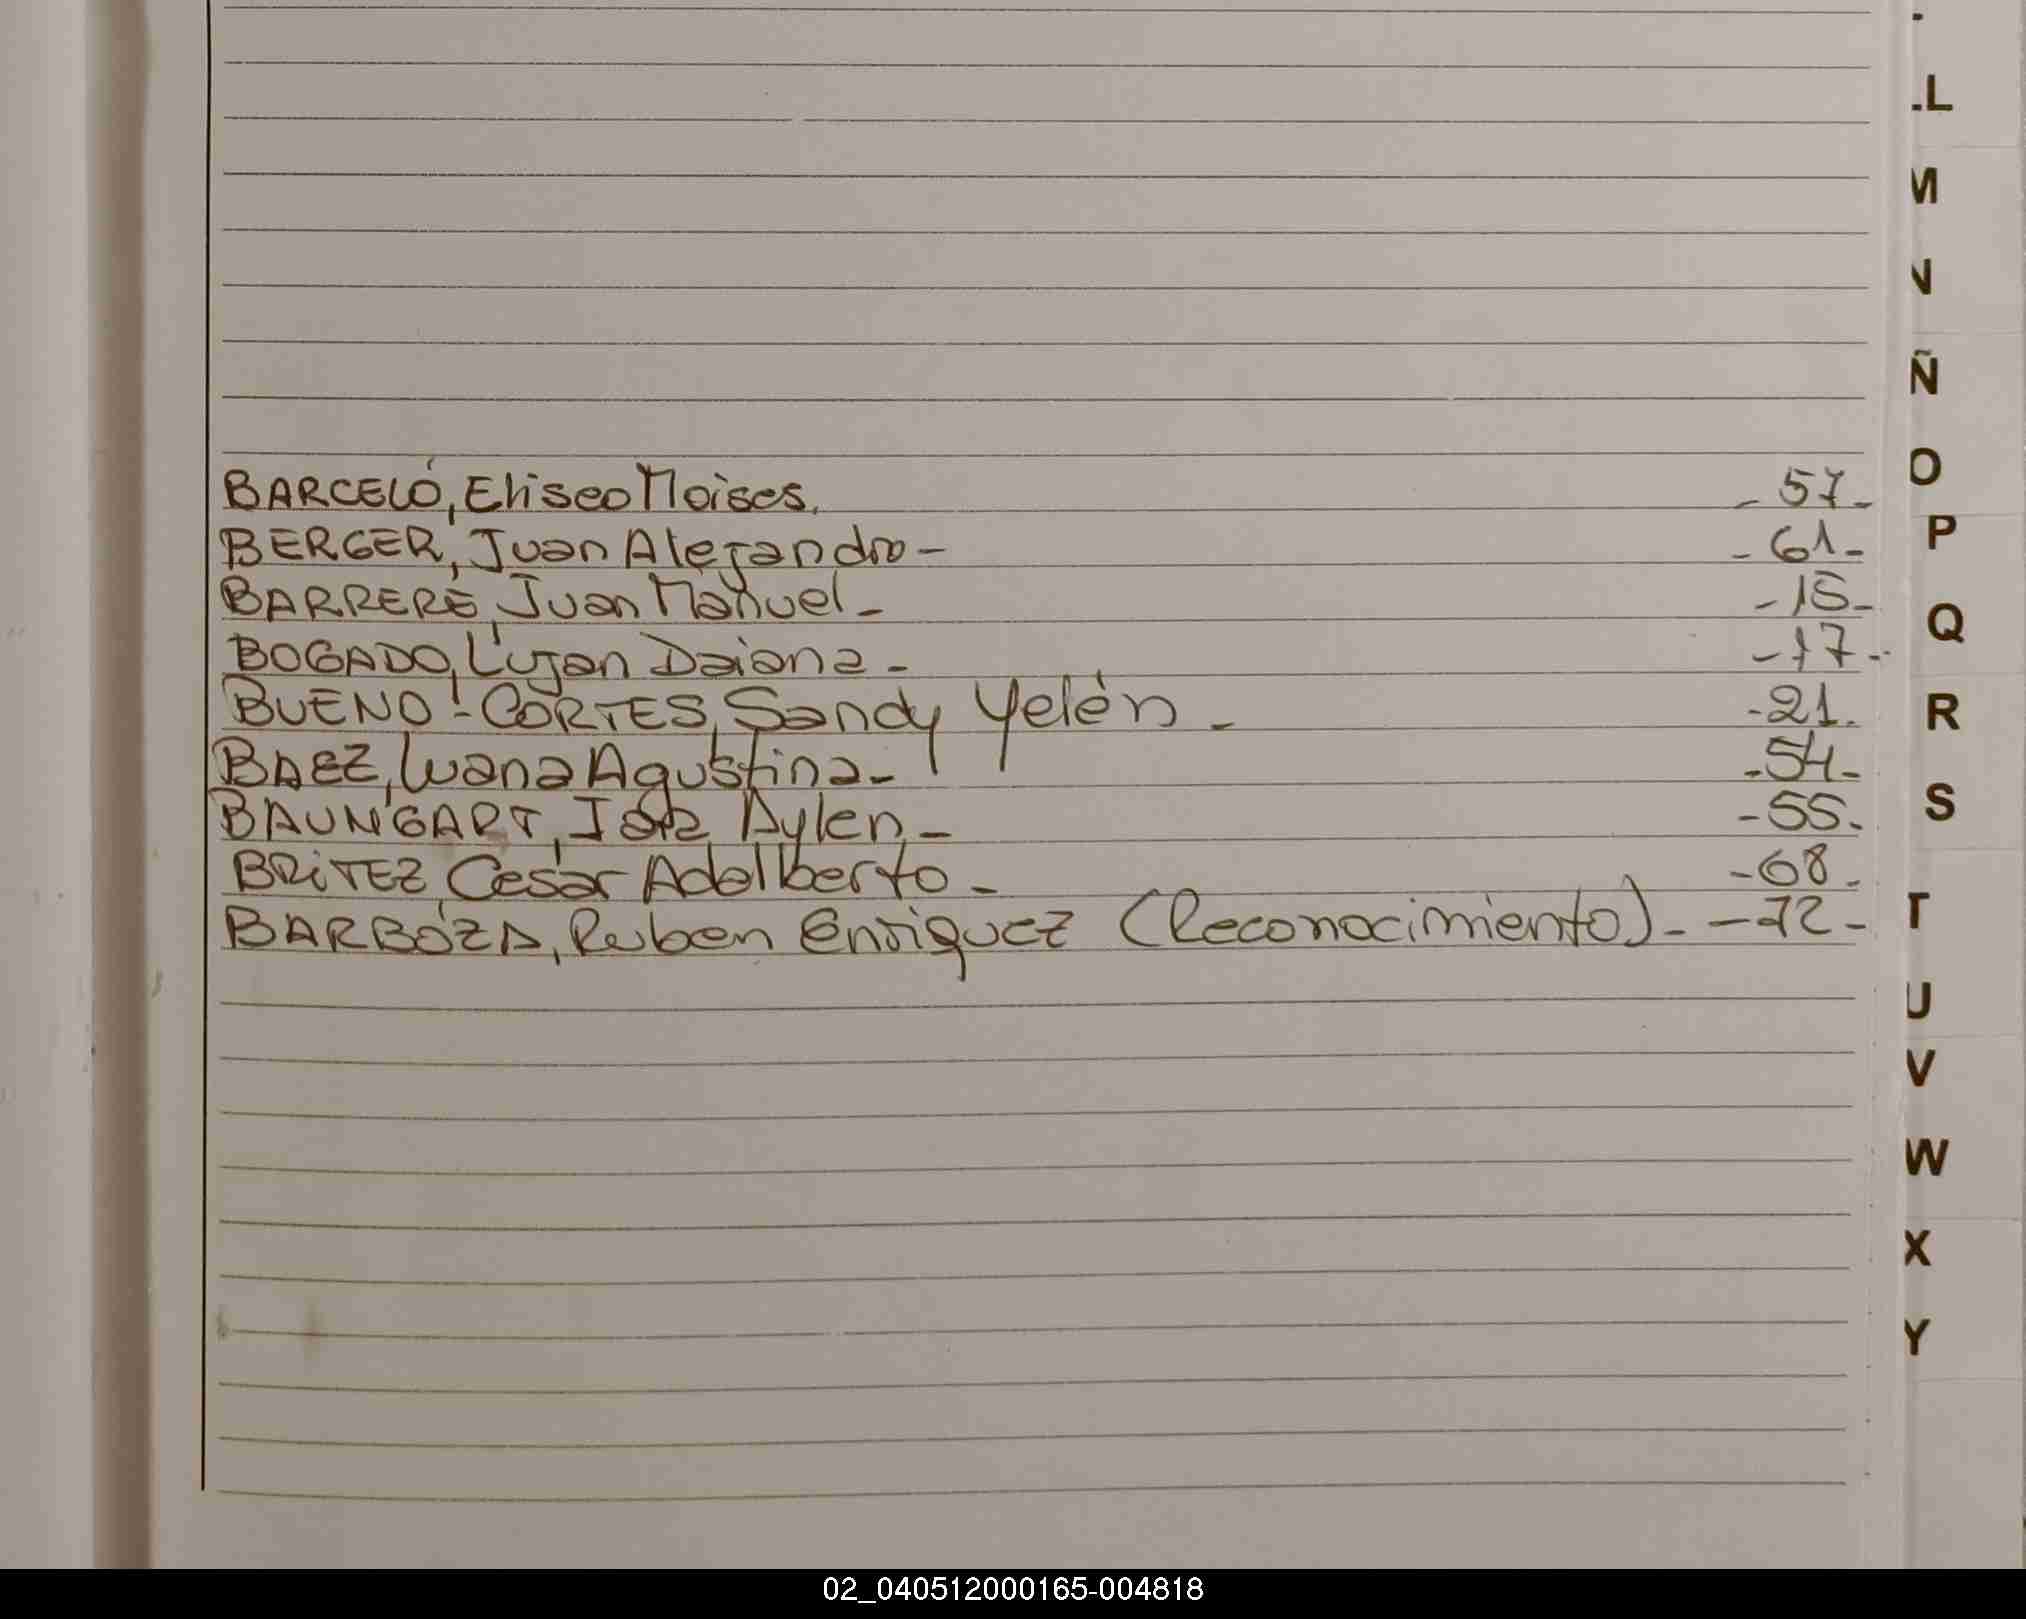 BARCELÓ, Eliseo Moises. - 57-
BERGER, Juan Alejandro - - 61-
BARRERE, Juan Manuel - - 15-
BOGADO, Lujan Daiana - - 17-
BUENO - CORTES, Sandy Yelén - - 21.
BAEZ, Luana Agustina - - 54-
BAUMGART, Aylen - - 55.
BRITEZ, Cesar Adalberto - - 68.
BARBOZA, Ruben Enriquez (Reconocimiento) - - 72-
L
M
N
Ñ
O
P
Q
R
S
T
U
V
W
X
Y
02_040512000165-004818